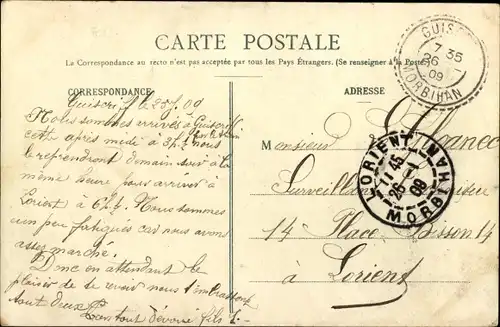 CARTE POSTALE
La Correspondance au recto n'est pas acceptée par tous les Pays Étrangers. (Se renseigner à la Poste)
CORRESPONDANCE
Guiscriff le 25/1 09
Nous sommes arrivés à Guiscriff
cette après midi à 3h½ nous
le reprendront demain soir à la
même heure pour arriver à
Lorient à 6h½. Nous sommes
un peu fatigués car nous avons
assez marché.
Donc en attendant le
plaisir de te revoir nous t'embrassons
tout deux
Ton tout dévoué fils
ADRESSE
Monsieur
Surveillant
14 Place Bisson 14
à Lorient
GUISC
7 35
26
09
MORBIHAN
LORIENT
11 45
26 -1
09
MORBIHAN